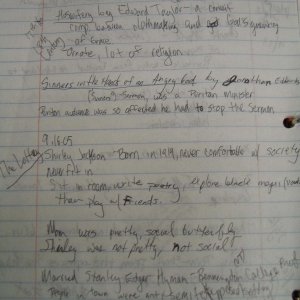 Huswifery by Edward Taylor - a conceit
Comp. between clothmaking and God's granting
of Grace
Ornate, lot of religion
Sinners in the Hand of an Angry God by Jonathan Edwards
(Sermon) was a Puritan minister
Puritan audience was so affected he had to stop the Sermon.
9.16.05
The Lottery
Shirley Jackson - Born in 1919, never comfortable w/ society
never fit in
Sit in room, write poetry, explore black magic
than play w/ friends.
Mom was pretty, social butterfly
Shirley was not pretty, not social
Married Stanley Edgar Hyman - Bennington College